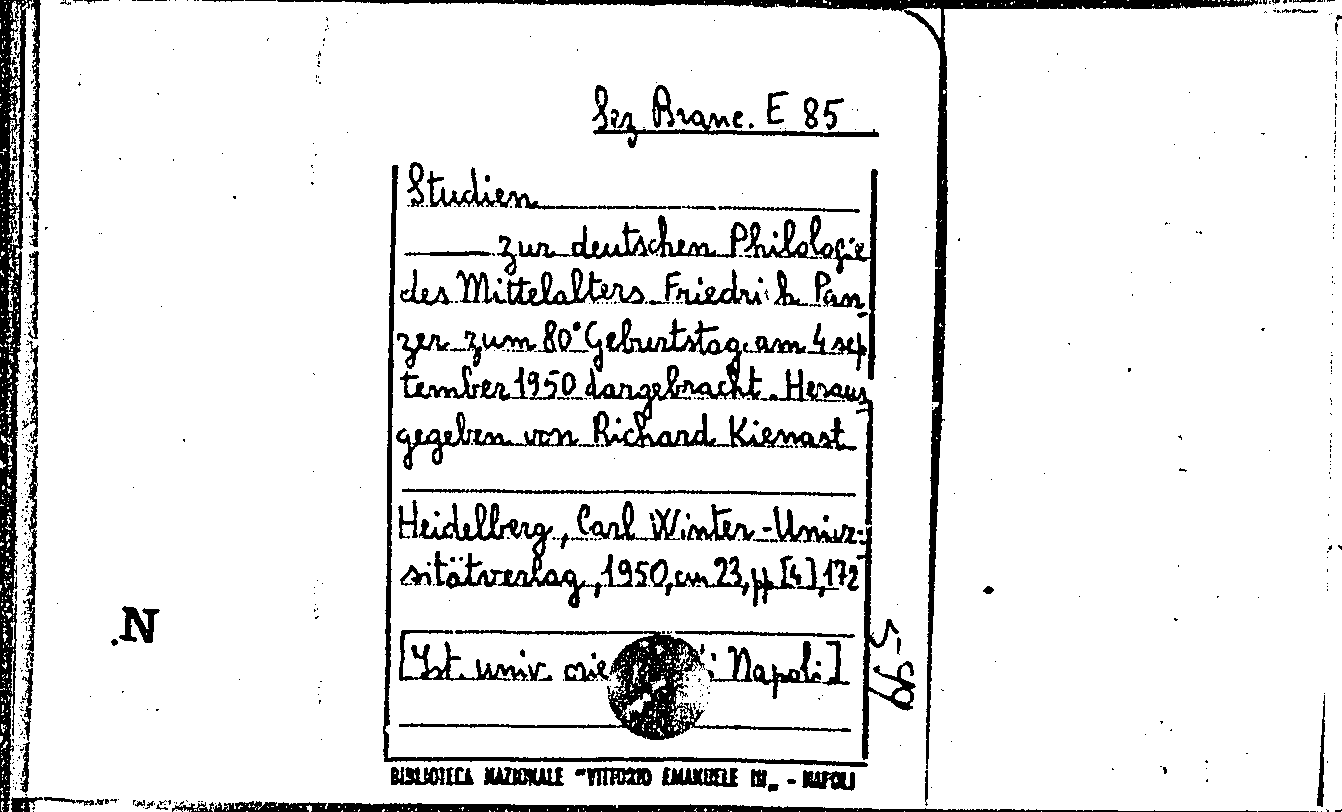 Sez Branc. E 85
Studien
zur deutschen Philologie
des Mittelalters Friedrich Pan
zer zum 80° Geburtstag am 4 sep
tember 1950 dargebracht. Heraus
gegeben von Richard Kienast
Heidelberg, Carl Winter-Univer-
sitätverlag, 1950, cm 23, pp [4], 172
[Ist. univ. Napoli]
BIBLIOTECA NAZIONALE "VITTORIO EMANUELE III„ - NAPOLI
N